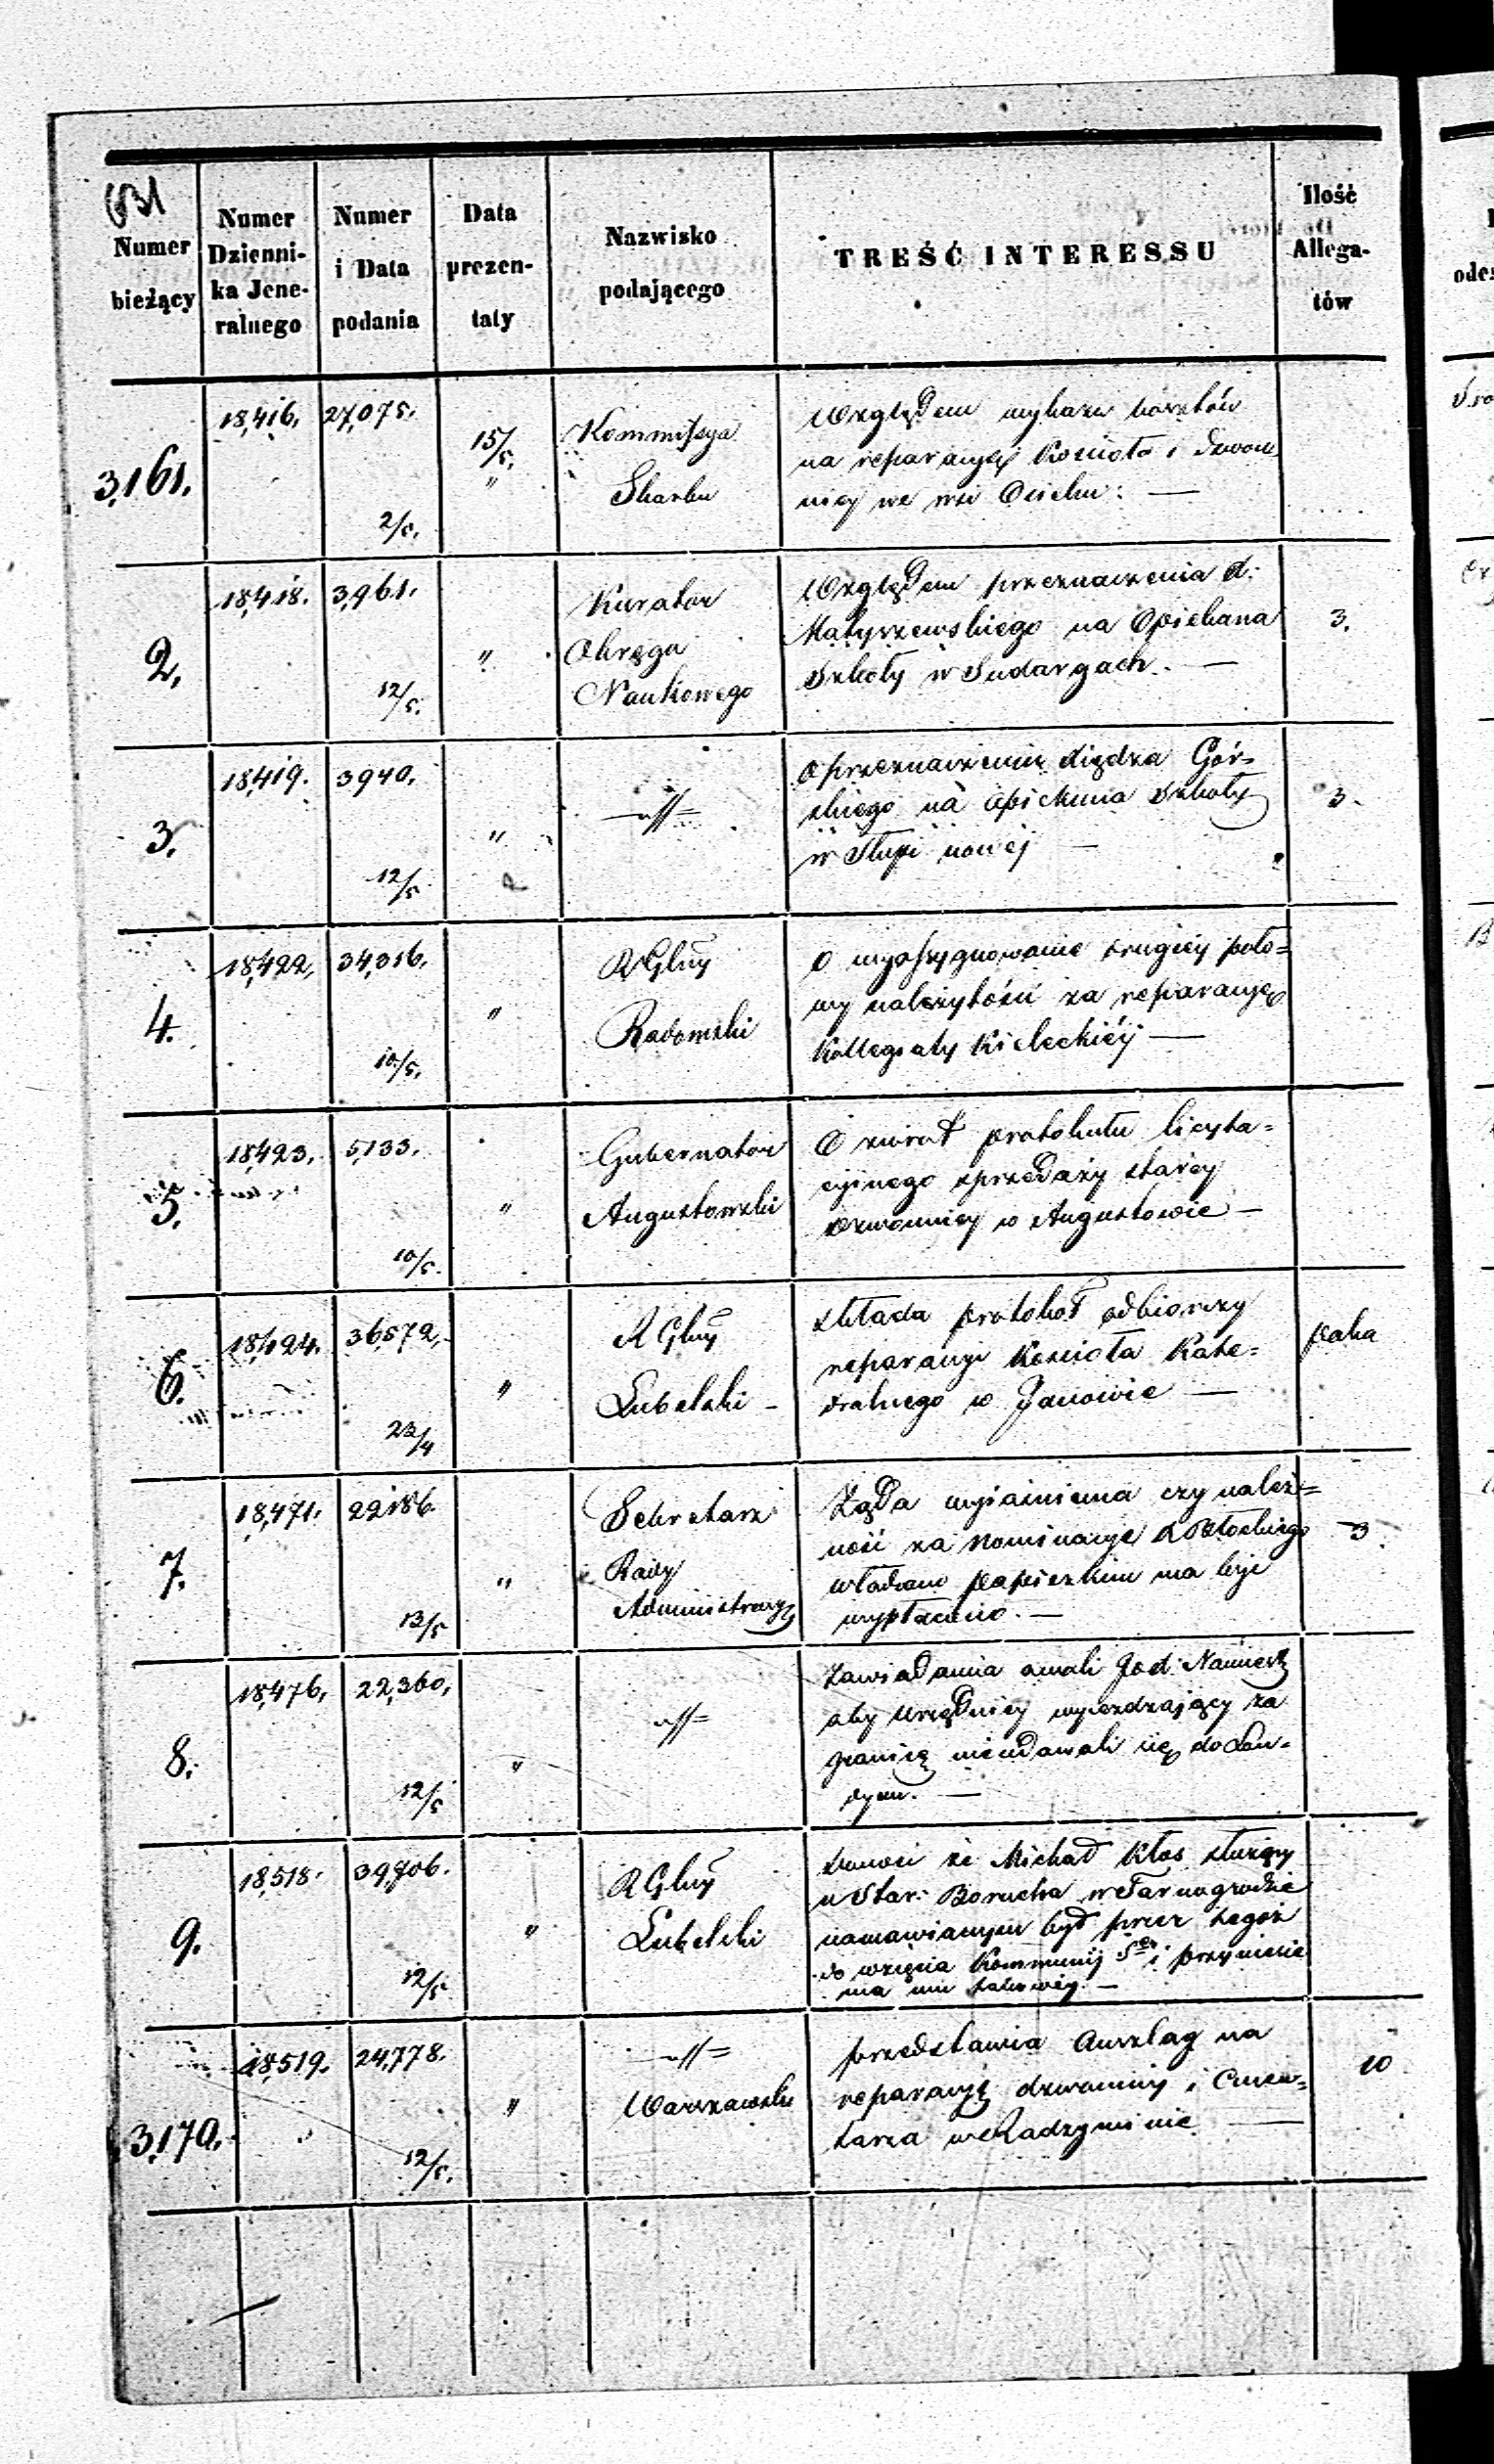 631
Numer bieżący
Numer Dzienni-ka Jene-ralnego
Numer i Data podania
Data prezen-taty
Nazwisko podającego
TREŚĆ INTERESSU
Ilość Allega-tów
3,161.
18,416.
27,075.
2/5.
15/5.
"
Kommissya
Skarbu
Względem wykazu kosztów
na reparacyę Kościoła i dzwon
nicy we wsi :—
2.
18,418.
3,961.
12/5.
"
Kurator
Okręgu
Naukowego
Względem przeznaczenia X:
Matyszewskiego na Opiekuna
Szkoły w Sudargach.—
3.
3.
18,419.
3940.
12/5
"
—//=
O przeznaczenie Xiędza Gór=
skiego na opiekuna Szkoły
w Słupi nowej —
3.
4.
18,422.
34,316.
10/5.
"
RGlny
Radomski
O wyassygnowanie drugiey poło=
wy należytości za reparacyę
Kollegiaty Kieleckiéj —
5.
18,423.
5,133.
10/5.
"
Gubernator
Augustowski
O zwrot protokułu licyta=
cyjnego sprzedaży starey
dzwonnicy w Augustowie —
6.
18,424.
36,572.
23/4
"
RGlny
Lubelski —
Składa protokół odbiorczy
reparacyi Kościoła Kate=
dralnego w Janowie —
paka
7.
18,471.
22186.
13/5
"
Sekretarz
Rady
Administracyj
Żąda wyjaśnienia czy należ=
ność za Nominacye
władzom papiezkim ma być
wypłacono.—
3.
8.
18,476.
22,360.
12/5
"
—//=
Zawiadamia Jaś: Namiest
aby Urzędnicy wyjezdzający za
granicę nieudawali się do Lon=
dynu.—
9.
18,518.
39,706.
12/5
"
RGlny
Lubelski
Donosi że Michał Kłos służący
u Star: Borucha w Tarnogrodzie
namawianym był przez tegoż
do wzięcia Kommunij Sej i przyniesie
nia mu takowéy.—
3,170.
18,519.
24,778.
12/5.
"
—//=
Warszawski
przedstawia Anszlag na
reparacyę dzwonnicy i Cmen=
tarza w Radzyminie —
10